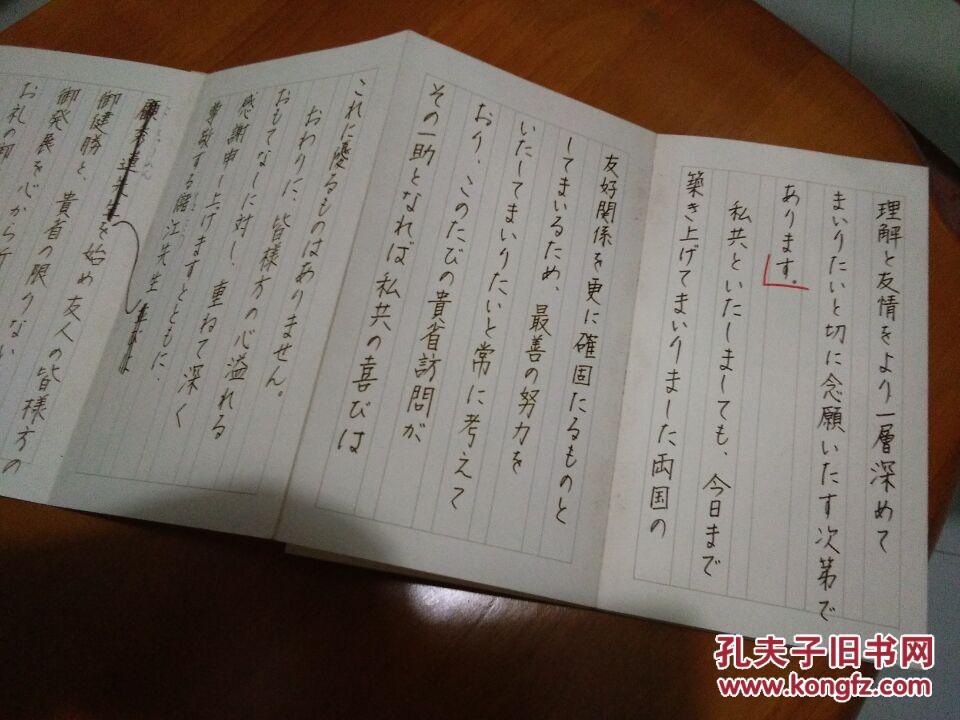 理解と友情をより一層深めて
まいりたいと切に念願いたす次第で
あります。
私共といたしましても、今日まで
築き上げてまいりました両国の
友好関係を更に確固たるものと
してまいるため、最善の努力を
いたしてまいりたいと常に考えて
おり、このたびの貴省訪問が
その一助となれば私共の喜びは
これに優るものはありません。
おわりに、皆様方の心溢れる
おもてなしに対し、重ねて深く
感謝申し上げますとともに、
尊敬する江先生
を始め友人の皆様方の
御健勝と、貴省の限りない
御発展を心から
お礼の御
孔夫子旧书网
www.kongfz.com